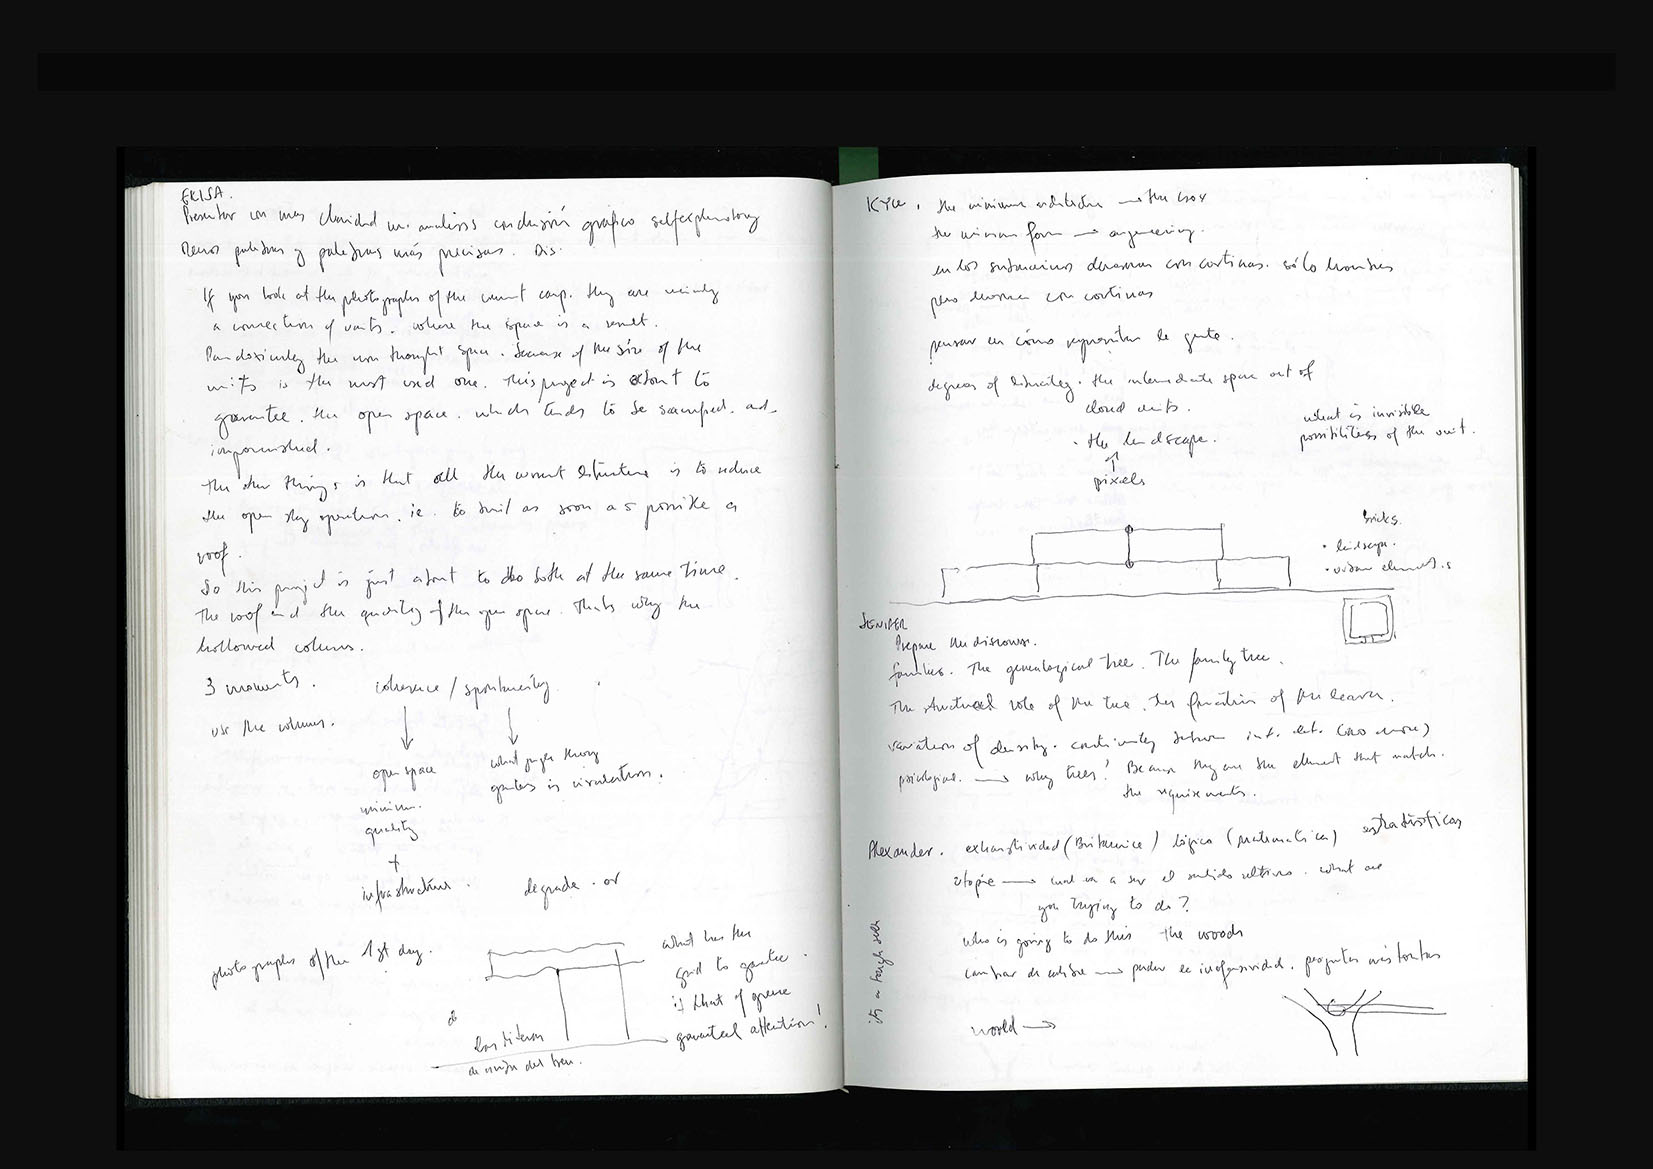 EKISA.
Presentar con mas claridad un. analisis conclusión gráfico selfexplanatory
Menos palabras y palabras más precisas. Dis.
If you look at the photographs of the current camp. they are mainly
a connection of units. where the space is a result.
Paradoxically the non thought space. because of the size of the
units is the most used one. This project is about to
guarantee. the open space. which tends to be sacrificed. and
impoverished.
The other things is that all the current structure is to reduce
the open sky operations. ie. to built as soon as possible a
roof.
So this project is just about to do both at the same time.
The roof and the quality of the open space. Thats why the
hollowed columns.
3 moments.
coherence / spontaneity
use the columns.
open space
minimum.
quality
+
infrastructure.
what
is circulation.
degrade. or
photographs of the 1st day.
what has the
grid to
is that of
guaranteed attention!
las literas
del tren.
KYle. the minimum architecture → the box
the minimum form → engineering.
en los submarinos duermen con cortinas. sólo hombres
pero duermen con cortinas
pensar en cómo representar la gente.
degrees of intimacy. the intermediate space out of
closed units.
· the landscape.
↑
pixels
what is invisible
possibilities of the unit.
bricks.
• landscape.
• urban elements
JENIFER
Prepare the discourse.
families. The genealogical tree. The family tree.
The structural role of the tree. the function of the leaves.
variations of density. continuity between int. ext. (no more)
→ why trees? Because they are the element that match.
the requirements.
Alexander. exhaustividad (Britannica) lógica (matematica) estadísticas
utopie → cual va a ser el sentido ultimo. what are
you trying to do?
who is going to do this the woods
cambiar de calibre → perder la inofensividad. preguntas
world →
its a rough